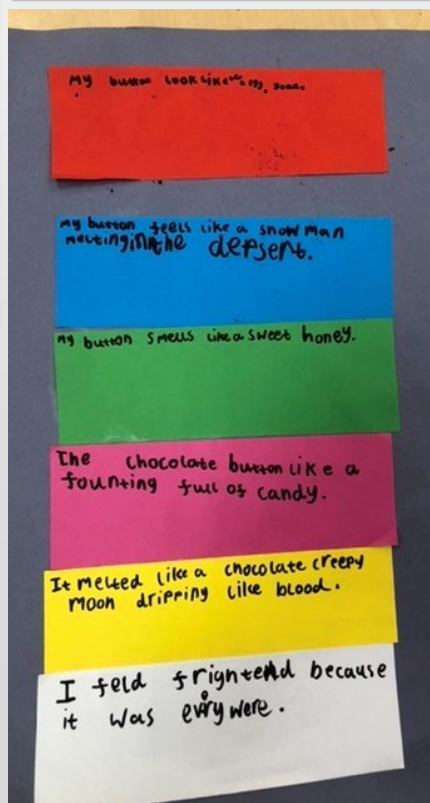 My button look like
my button feels like a snow man
meltinginthe depsert.
My button smells like a sweet honey.
The chocolate button like a
founting full of candy.
It melted like a chocolate creepy
moon dripping like blood.
I feld frightend because
it was evrywere.